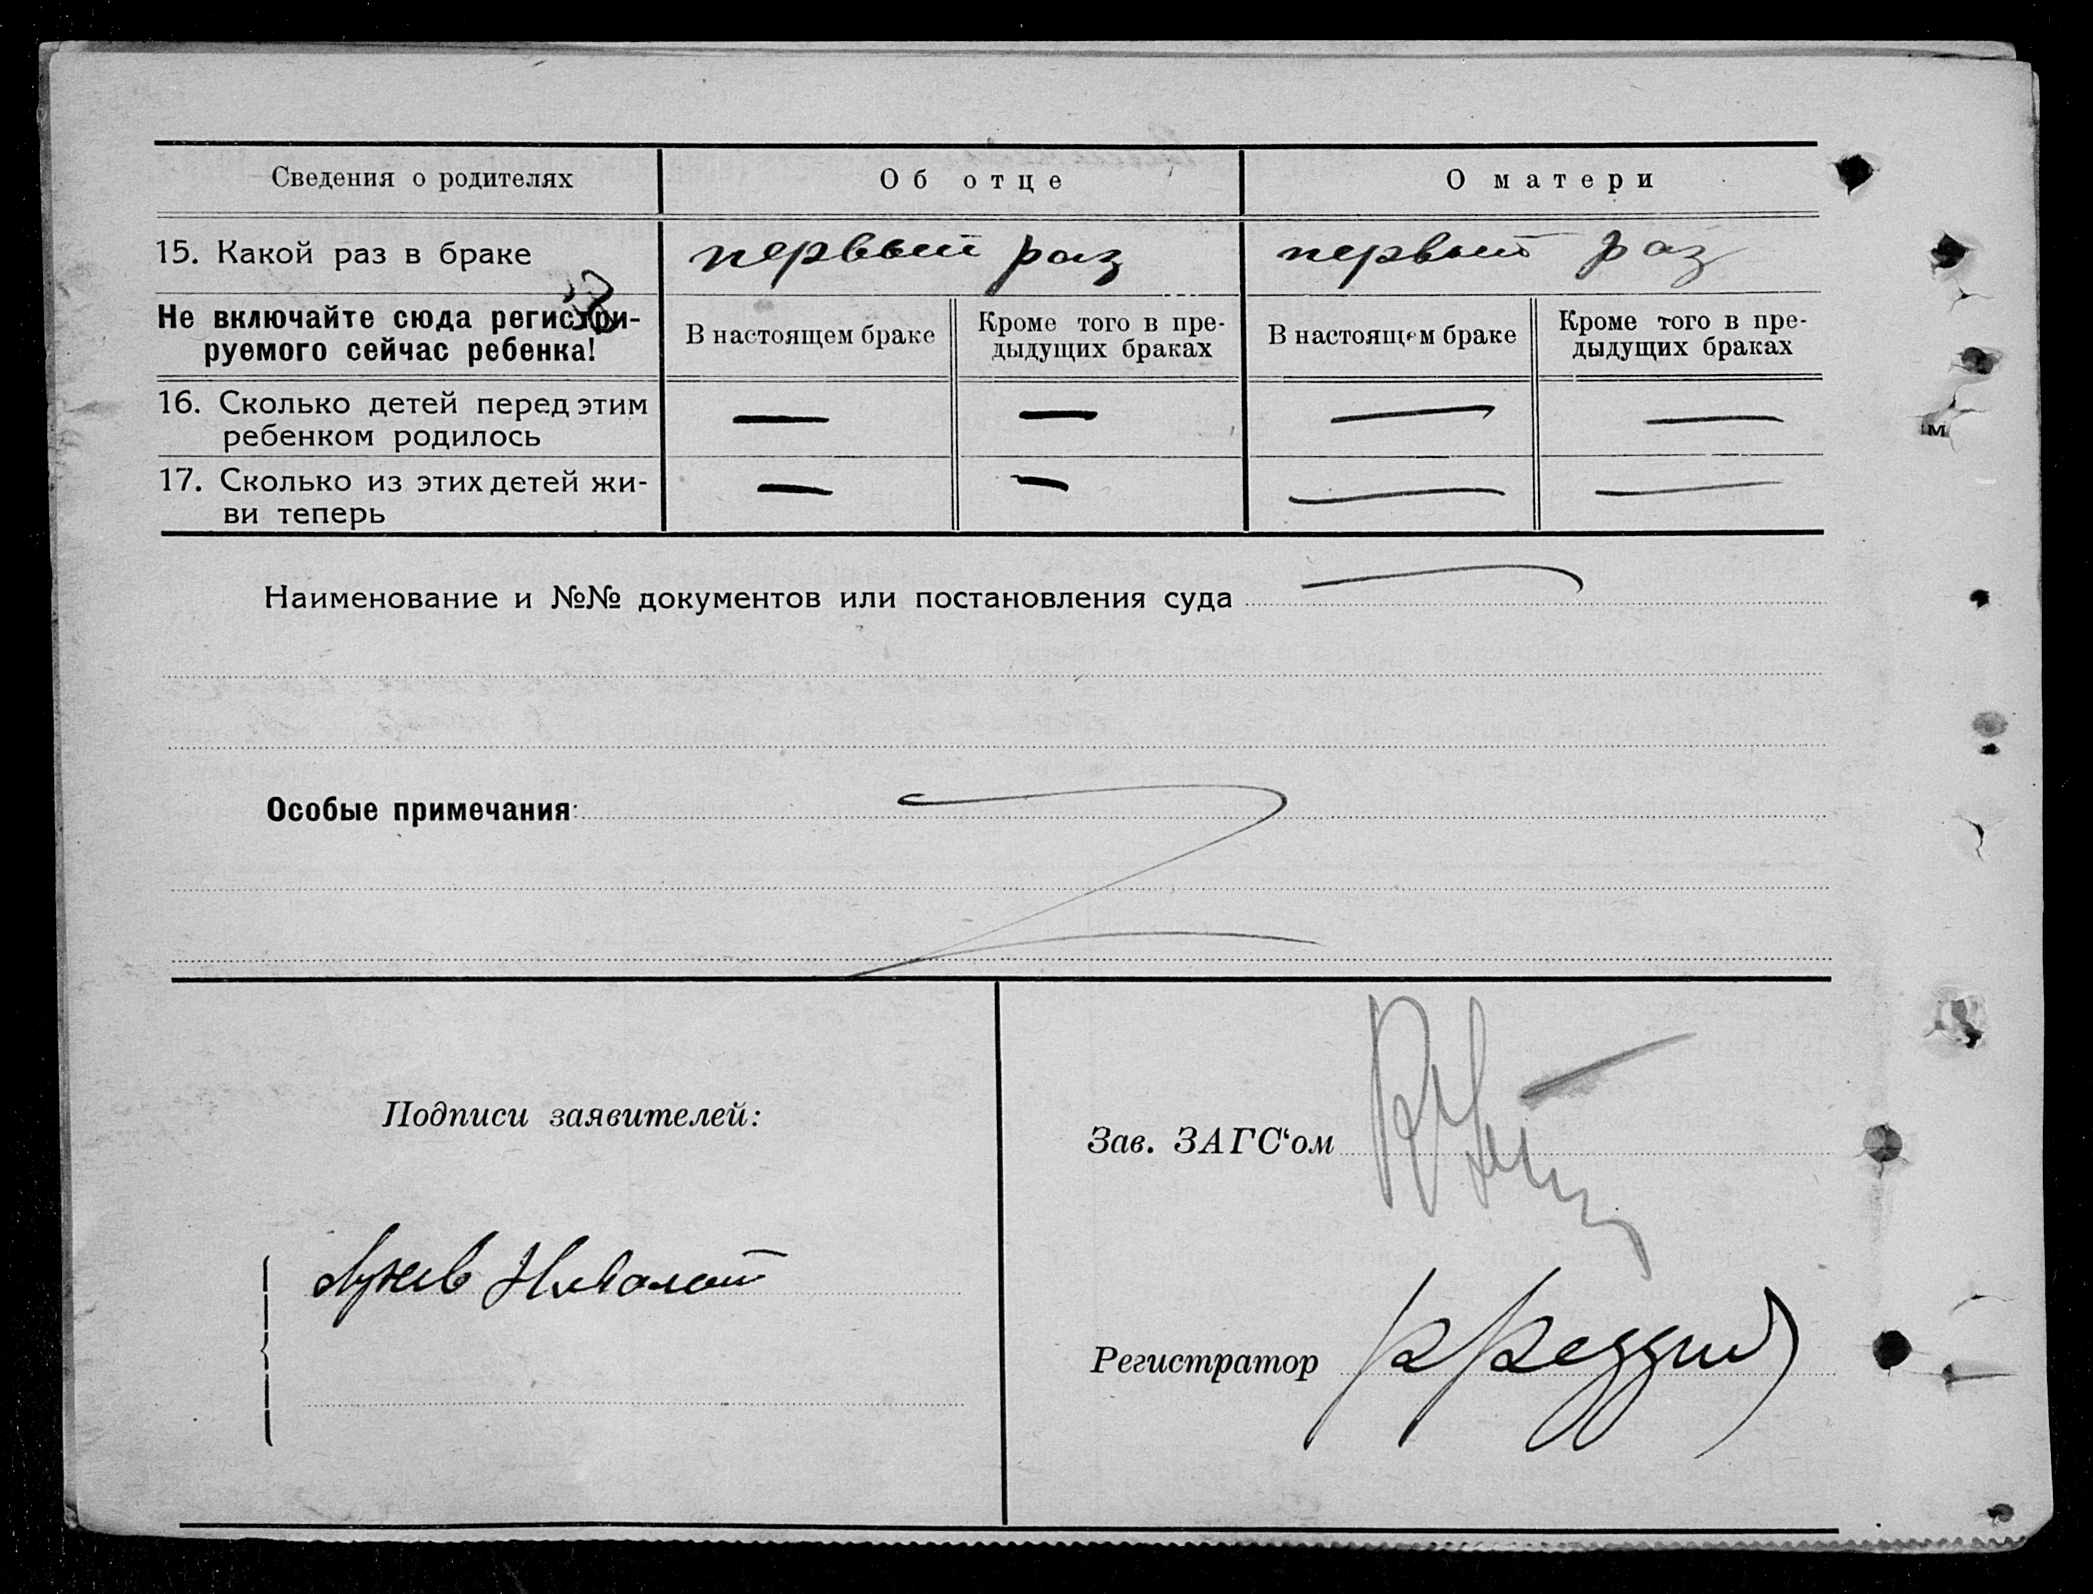 Сведения о родителях Об отце О матери
15. Какой раз в браке первый раз первый раз
Не включайте сюда регистри-
руемого сейчас ребенка!
В настоящем браке
Кроме того в пре-
дыдущих браках
В настоящем браке
Кроме того в пре-
дыдущих браках
16. Сколько детей перед этим — — — —
ребенком родилось
17. Сколько из этих детей жи- — — — —
ви теперь
Наименование и №№ документов или постановления суда —
Особые примечания:
Подписи заявителей:
Николай
Зав. ЗАГС‘ом
Регистратор